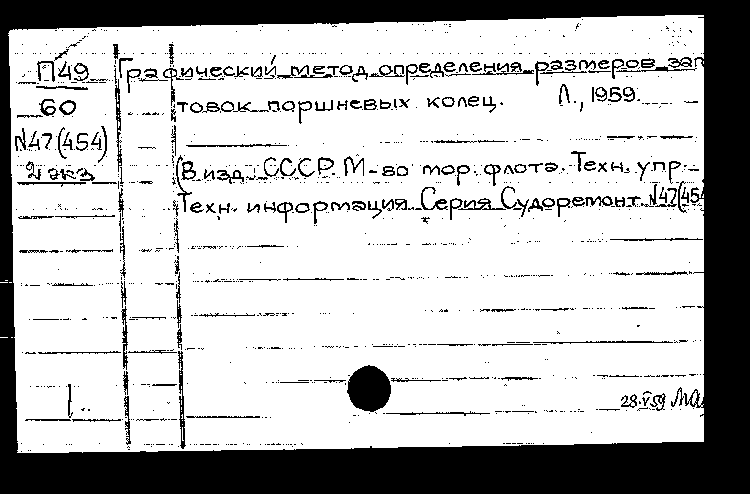 П49 Графический метод определения размеров заг
60 товок поршневых колец. Л., 1959.
N47(454)
2 экз (В изд. СССР. М-во мор. флота. Техн. упр.
Техн. информация. Серия Судоремонт. N47(454
1.
28.V 59